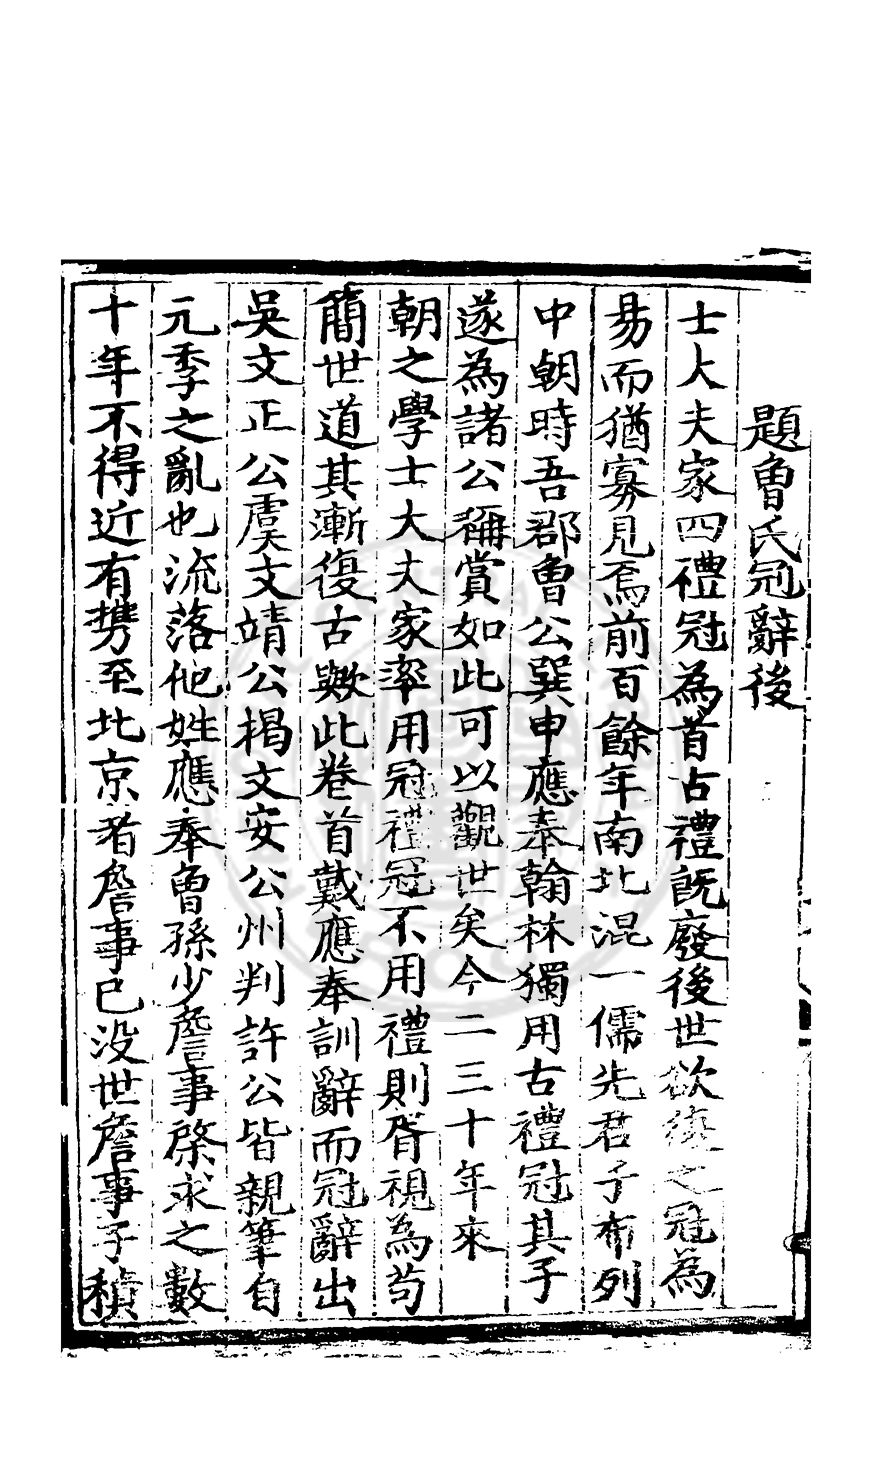 題魯氏冠辭後
士大夫家四禮冠為首古禮既廢後世欲復之冠為
易而猶寡見焉前百餘年南北混一儒先君子布列
中朝時吾郡魯公巽申應奉翰林獨用古禮冠其子
遂為諸公稱賞如此可以觀世矣今二三十年來
朝之學士大夫家率用冠禮冠不用禮則胥視為茍
簡世道其漸復古歟此卷首戴應奉訓辭而冠辭出
吳文正公虞文靖公揭文安公州判許公皆親筆自
元季之亂也流落他姓應奉曾孫少詹事棨求之數
十年不得近有携至北京者詹事已没世詹事子積